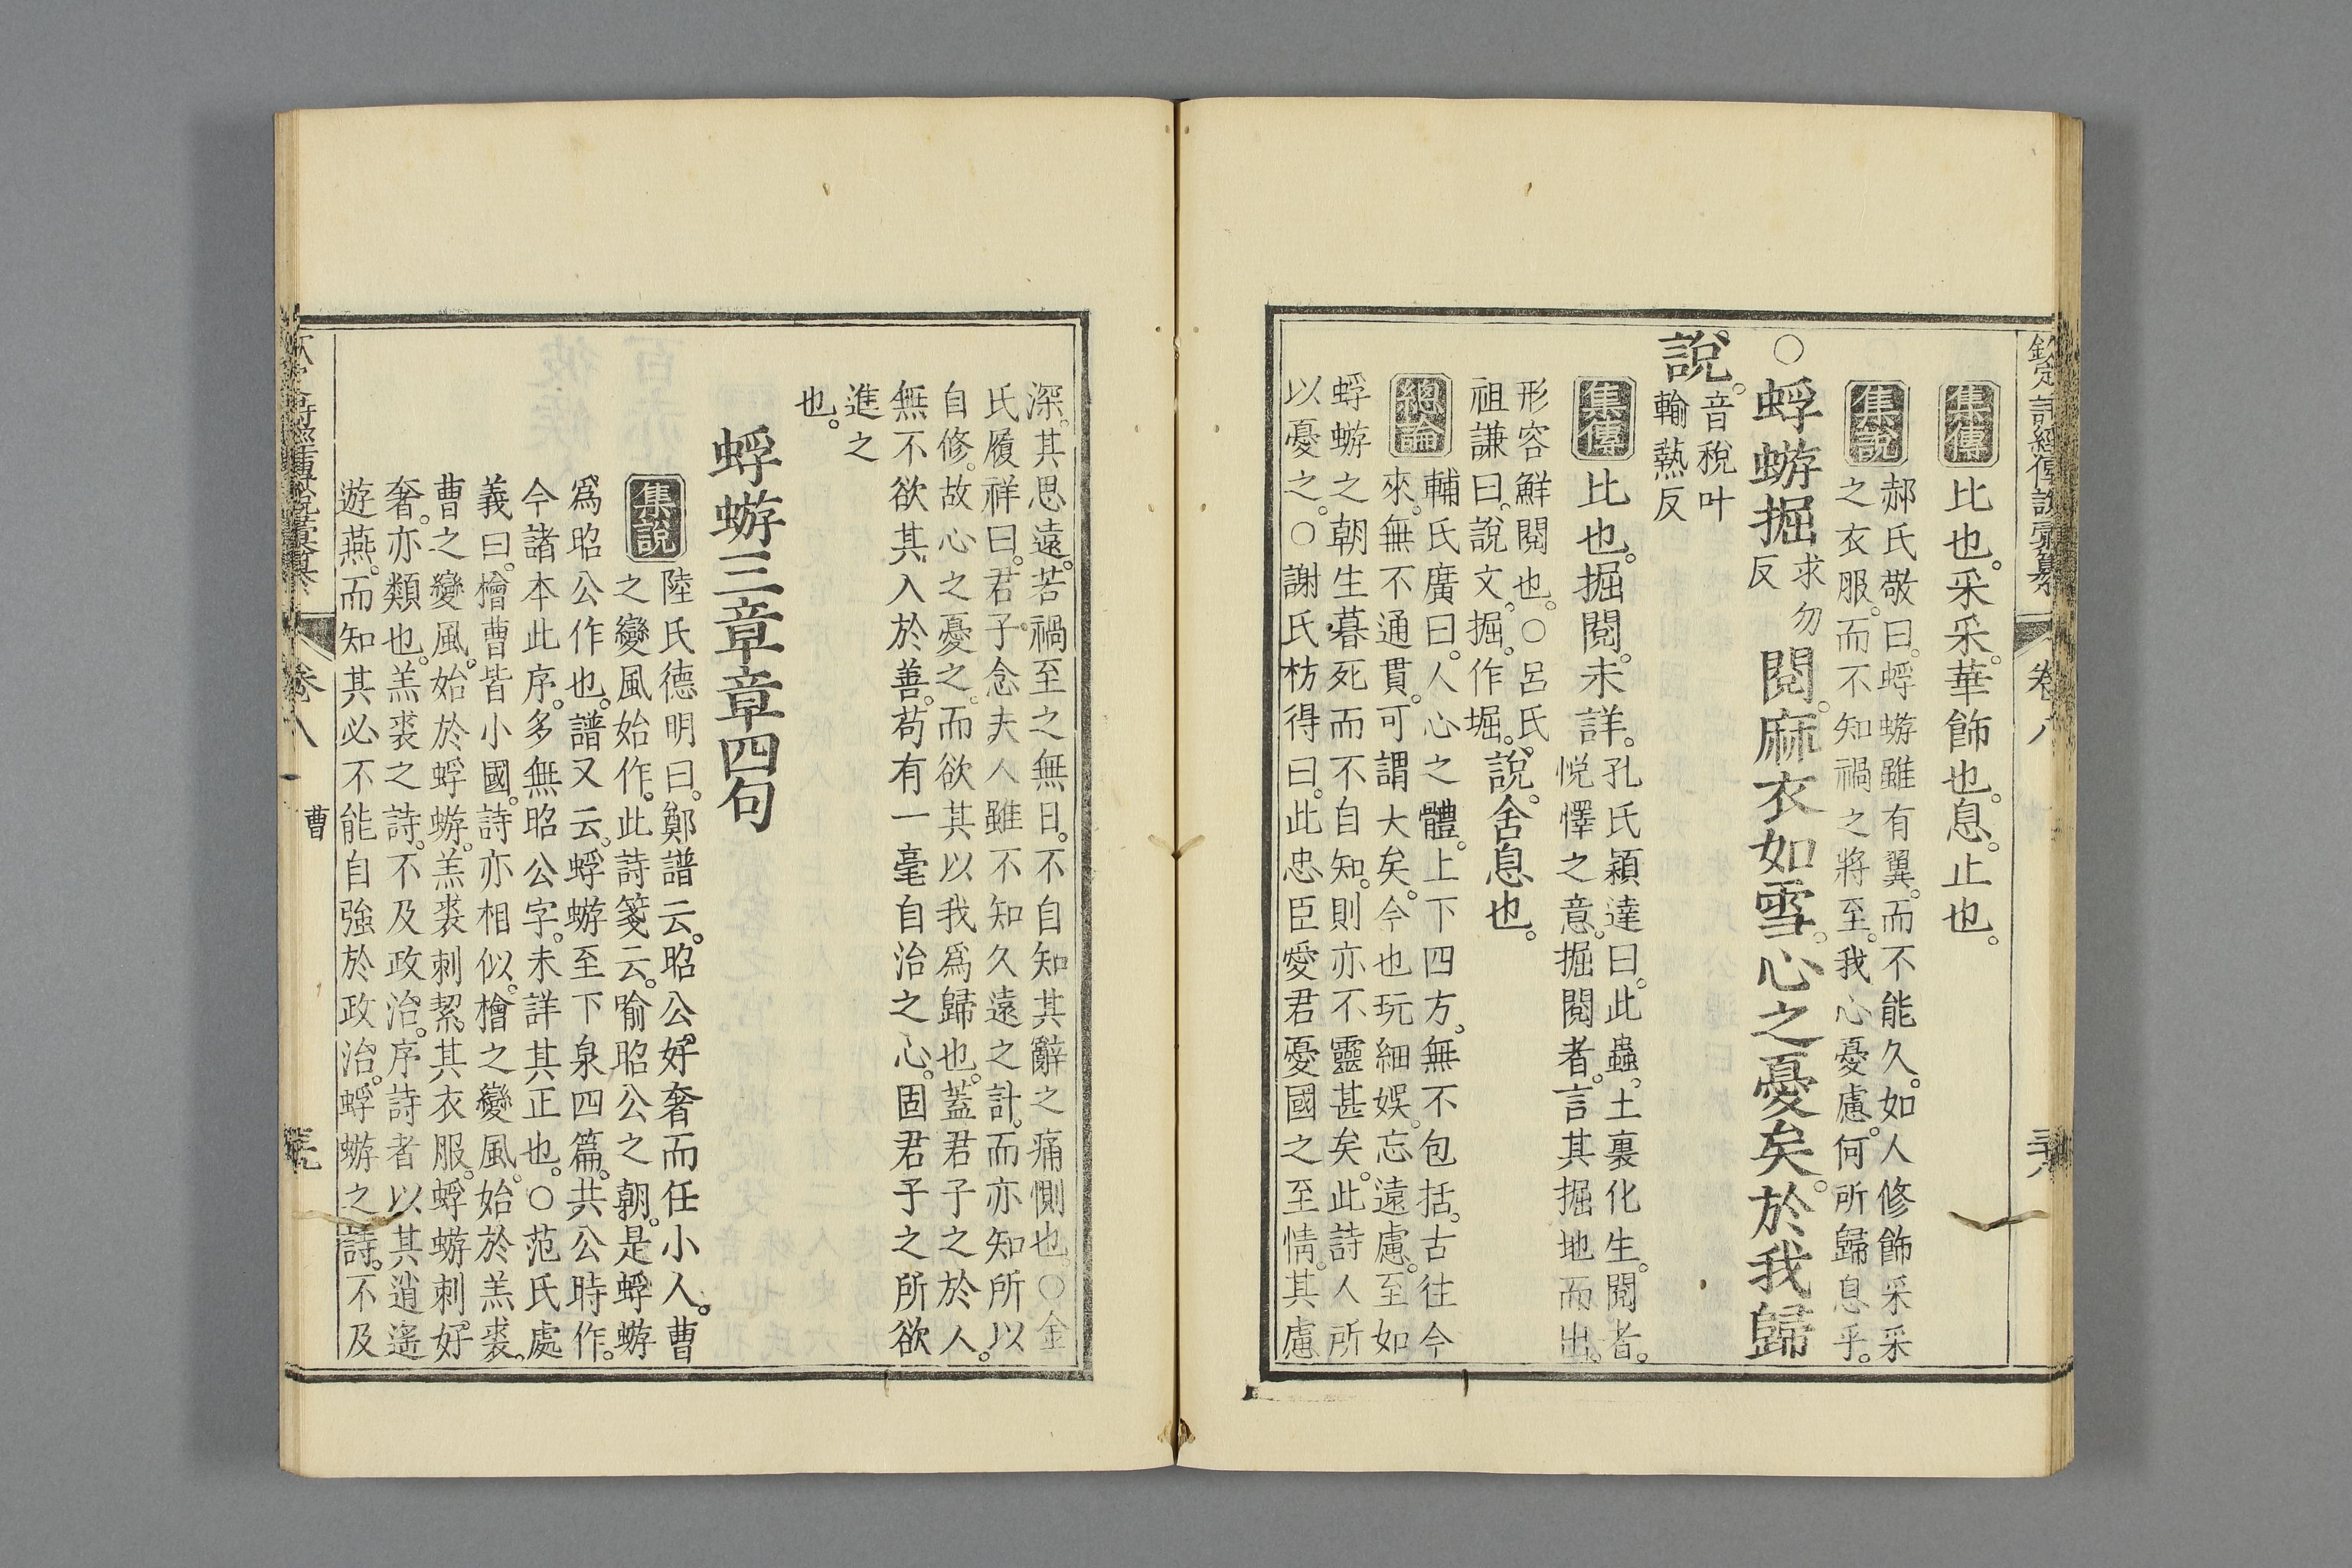 欽定詩經傳說彙纂 卷八
集傳 比也。采采。華飾也。息。止也。
集說 郝氏敬曰。蜉蝣雖有翼。而不能久。如人修飾采采
之衣服。而不知禍之將至。我心憂慮。何所歸息乎。
○蜉蝣掘求勿反閱。麻衣如雪。心之憂矣。於我歸
說。音稅叶輸熱反
集傳 比也。掘閱。未詳。孔氏穎達曰。此蟲。土裏化生。閱者。
悅懌之意。掘閱者。言其掘地而出。
形容鮮閱也。○呂氏
祖謙曰。說文。掘。作堀。說。舍息也。
總論 輔氏廣曰。人心之體。上下四方。無不包括。古往今
來。無不通貫。可謂大矣。今也玩細娛。忘遠慮。至如
蜉蝣之朝生暮死而不自知。則亦不靈甚矣。此詩人所
以憂之。○謝氏枋得曰。此忠臣愛君憂國之至情。其慮
深。其思遠。若禍至之無日。不自知其辭之痛惻也。○金
氏履祥曰。君子念夫人雖不知久遠之計。而亦知所以
自修。故心之憂之。而欲其以我爲歸也。蓋君子之於人。
無不欲其入於善。苟有一毫自治之心。固君子之所欲
進之
也。
蜉蝣三章章四句
集說 陸氏德明曰。鄭譜云。昭公。好奢而任小人。曹
之變風始作。此詩箋云。喻昭公之朝。是蜉蝣
爲昭公作也。譜又云。蜉蝣至下泉四篇。共公時作。
今諸本此序。多無昭公字。未詳其正也。○范氏處
義曰。檜曹皆小國。詩亦相似。檜之變風。始於羔裘。
曹之變風。始於蜉蝣。羔裘刺絜其衣服。蜉蝣刺好
奢。亦類也。羔裘之詩。不及政治。序詩者以其逍遙
遊燕。而知其必不能自強於政治。蜉蝣之詩。不及
卷八 曹